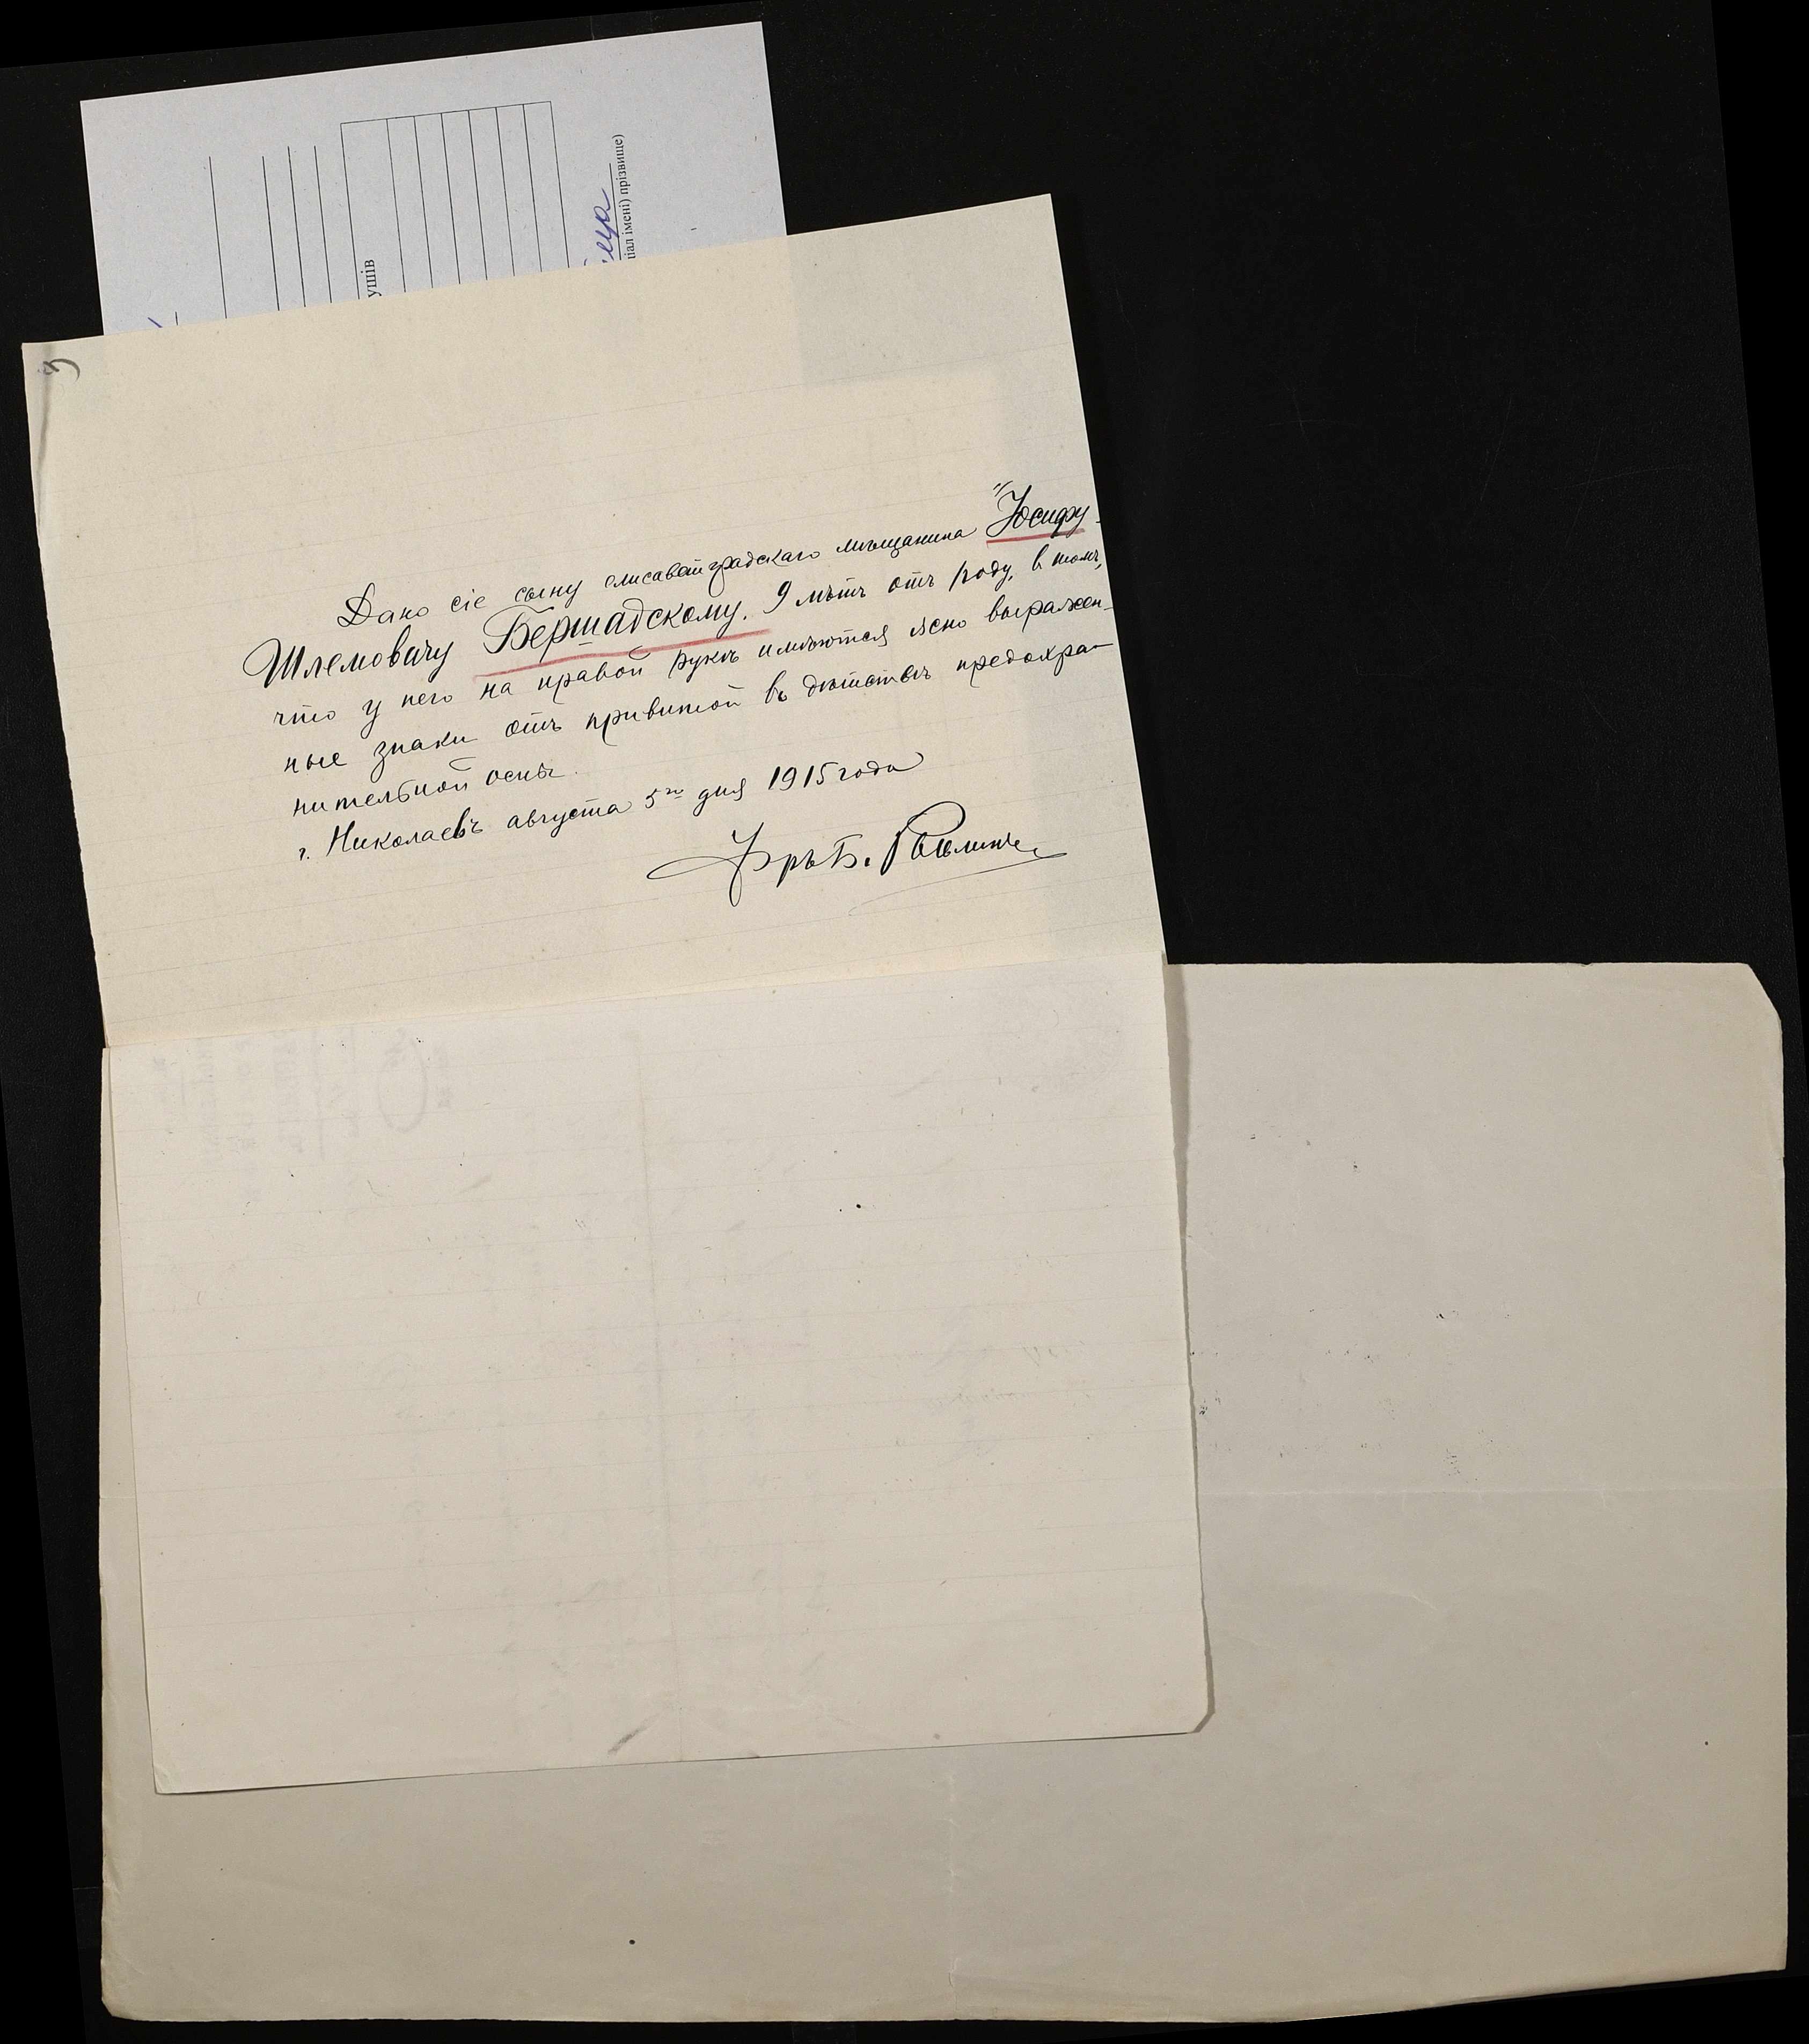 ушів
іал імені) прізвище)
Дано сіе сыну елисаветградскаго мѣщанина Юсифу
Шлемовичу Бершадскому. 9 лѣтъ отъ роду, в томъ,
что у него на правой рукѣ имѣются ясно выражен-
ные знаки отъ привитой въ дѣтствѣ предохра-
нительной оспы.
г. Николаевъ августа 5го дня 1915 года